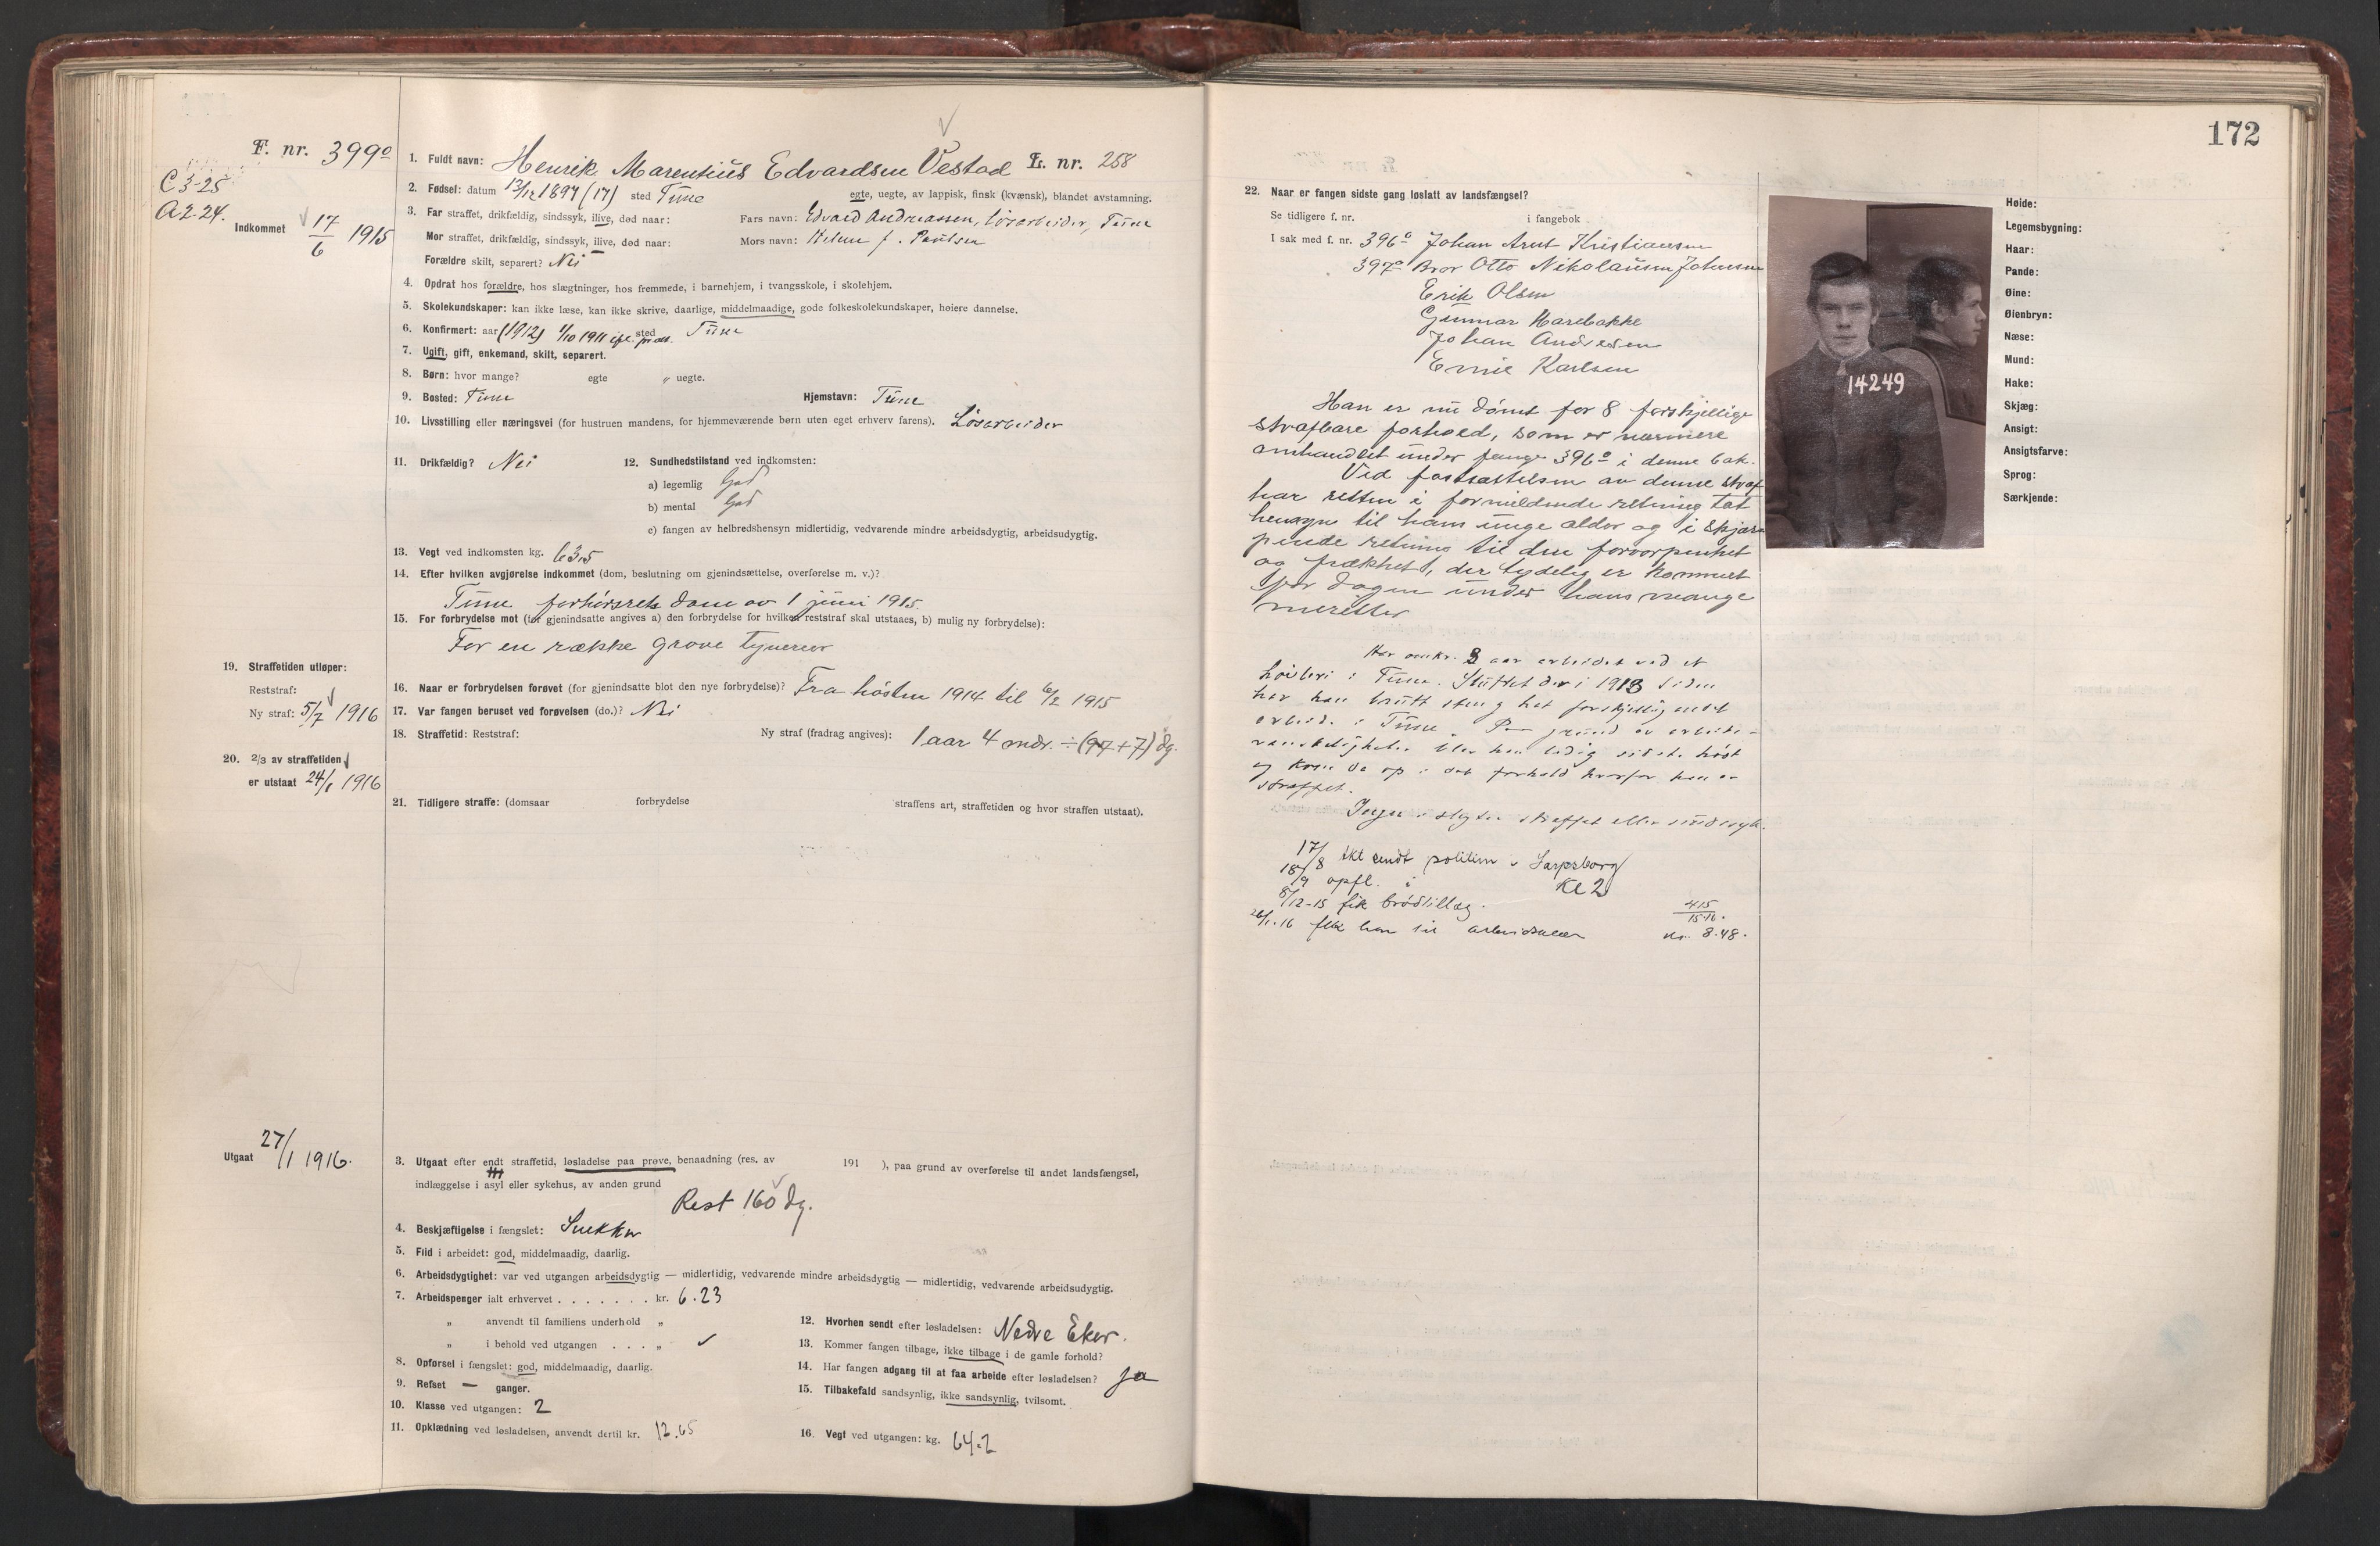 172
F. nr. 399º
C 3-25
A 2-24.
Indkommet 17/6 1915
1. Fuldt navn: Henrik Marentius Edvardsen Vestad L. nr. 258
2. Fødsel: datum 13/12 1897 (17) sted Tune egte, uegte, av lappisk, finsk (kvænsk), blandet avstamning.
3. Far straffet, drikfældig, sindssyk, ilive, død naar: Fars navn: Edvard Andreassen, løsarbeider, Tune
Mor straffet, drikfældig, sindssyk, ilive, død naar: Mors navn: Helene f. Paulsen
Forældre skilt, separert? Nei
4. Opdrat hos forældre, hos slægtninger, hos fremmede, i barnehjem, i tvangsskole, i skolehjem.
5. Skolekundskaper: kan ikke læse, kan ikke skrive, daarlige, middelmaadige, gode folkeskolekundskaper, høiere dannelse.
6. Konfirmert: aar (1912) 1/10 1911 ifl. pr. att. sted Tune
7. Ugift, gift, enkemand, skilt, separert.
8. Børn: hvor mange? egte „ uegte.
9. Bosted: Tune Hjemstavn: Tune
10. Livsstilling eller næringsvei (for hustruen mandens, for hjemmeværende børn uten eget erhverv farens). Løsarbeider
11. Drikfældig? Nei 12. Sundhedstilstand ved indkomsten:
a) legemlig God
b) mental God
c) fangen av helbredshensyn midlertidig, vedvarende mindre arbeidsdygtig, arbeidsudygtig.
13. Vegt ved indkomsten kg. 63,5
14. Efter hvilken avgjørelse indkommet (dom, beslutning om gjenindsættelse, overførelse m. v.)?
Tune forhørsrets dom av 1 juni 1915.
15. For forbrydelse mot (for gjenindsatte angives a) den forbrydelse for hvilken reststraf skal utstaaes, b) mulig ny forbrydelse):
For en række grove tyverier
16. Naar er forbrydelsen forøvet (for gjenindsatte blot den nye forbrydelse)? Fra høsten 1914 til 6/2 1915
17. Var fangen beruset ved forøvelsen (do.)? Nei
18. Straffetid: Reststraf: Ny straf (fradrag angives): 1 aar 4 mdr. ÷ (94+7) dg.
19. Straffetiden utløper:
Reststraf:
Ny straf: 5/7 1916
20. 2/3 av straffetiden
er utstaat 24/1 1916
21. Tidligere straffe: (domsaar forbrydelse straffens art, straffetiden og hvor straffen utstaat).
Utgaat 27/1 1916.
3. Utgaat efter endt straffetid, løsladelse paa prøve, benaadning (res. av 191 ), paa grund av overførelse til andet landsfængsel,
indlæggelse i asyl eller sykehus, av anden grund
Rest 160 dg.
4. Beskjæftigelse i fængslet: Snekker
5. Flid i arbeidet: god, middelmaadig, daarlig.
6. Arbeidsdygtighet: var ved utgangen arbeidsdygtig — midlertidig, vedvarende mindre arbeidsdygtig — midlertidig, vedvarende arbeidsudygtig.
7. Arbeidspenger ialt erhvervet . . . . . . . kr. 6.23
„ anvendt til familiens underhold „
„ i behold ved utgangen . . . „
8. Opførsel i fængslet: god, middelmaadig, daarlig.
9. Refset — ganger.
10. Klasse ved utgangen: 2
11. Opklædning ved løsladelsen, anvendt dertil kr. 12.65
12. Hvorhen sendt efter løsladelsen: Nedre Eker.
13. Kommer fangen tilbage, ikke tilbage i de gamle forhold?
14. Har fangen adgang til at faa arbeide efter løsladelsen? Ja
15. Tilbakefald sandsynlig, ikke sandsynlig, tvilsomt.
16. Vegt ved utgangen: kg. 64.2
22. Naar er fangen sidste gang løslatt av landsfængsel?
Se tidligere f. nr. i fangebok
I sak med f. nr. 396º Johan Arnt Kristiansen
397º Bror Otto Nikolausen Johansen
Erik Olsen
Gunnar Harebakke
Johan Andresen
Emil Karlsen
Han er nu dømt for 8 forskjellige
strafbare forhold, som er nærmere
omhandlet under fange 396º i denne bok.
Ved fastsættelsen av denne straf
har retten i formildende retning tat
hensyn til hans unge alder og i skjær-
pende retning til den forvorpenhet
og frækhet, der tydelig er kommet
for dagen under hans mange
meritter
Har omkr. 3 aar arbeidet ved et
høvleri i Tune. Sluttet der i 1913 Siden
har han brutt sten og hat forskjellig andet
arbeide i Tune. Paa grund av arbeids-
vanskeligheter blev han ledig sidste høst
og kom da op i det forhold hvorfor han er
straffet.
Ingen i slegten straffet eller sindssyk.
17/8 skt sendt politim i Sarpsborg
18/9 opfl. i Kl 2
5/12-15 fik brødtillæg.
26/1.16 fik han sit arbeidsalder
415
15-16.
kr. 8.48.
14249
Høide:
Legemsbygning:
Haar:
Pande:
Øine:
Øienbryn:
Næse:
Mund:
Hake:
Skjæg:
Ansigt:
Ansigtsfarve:
Sprog:
Særkjende: